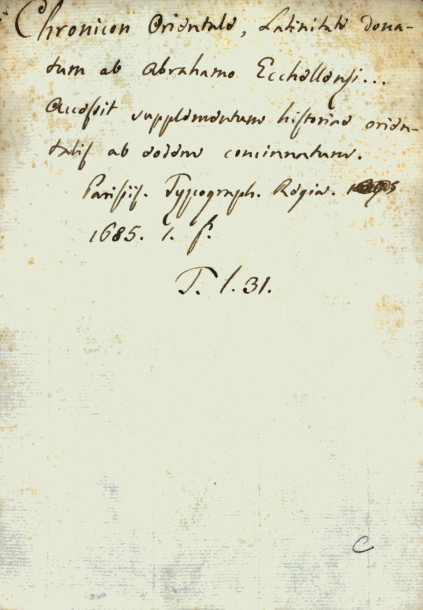 Chronicon Orientale, Latinitate dona-
tum ab Abrahamo Ecchellensi...
Accessit supplementum historiae orien-
talis ab eodem concinnatum.
Parisiis. Typograph. Regia.
1685. 1. f.
T. 1. 31.
C